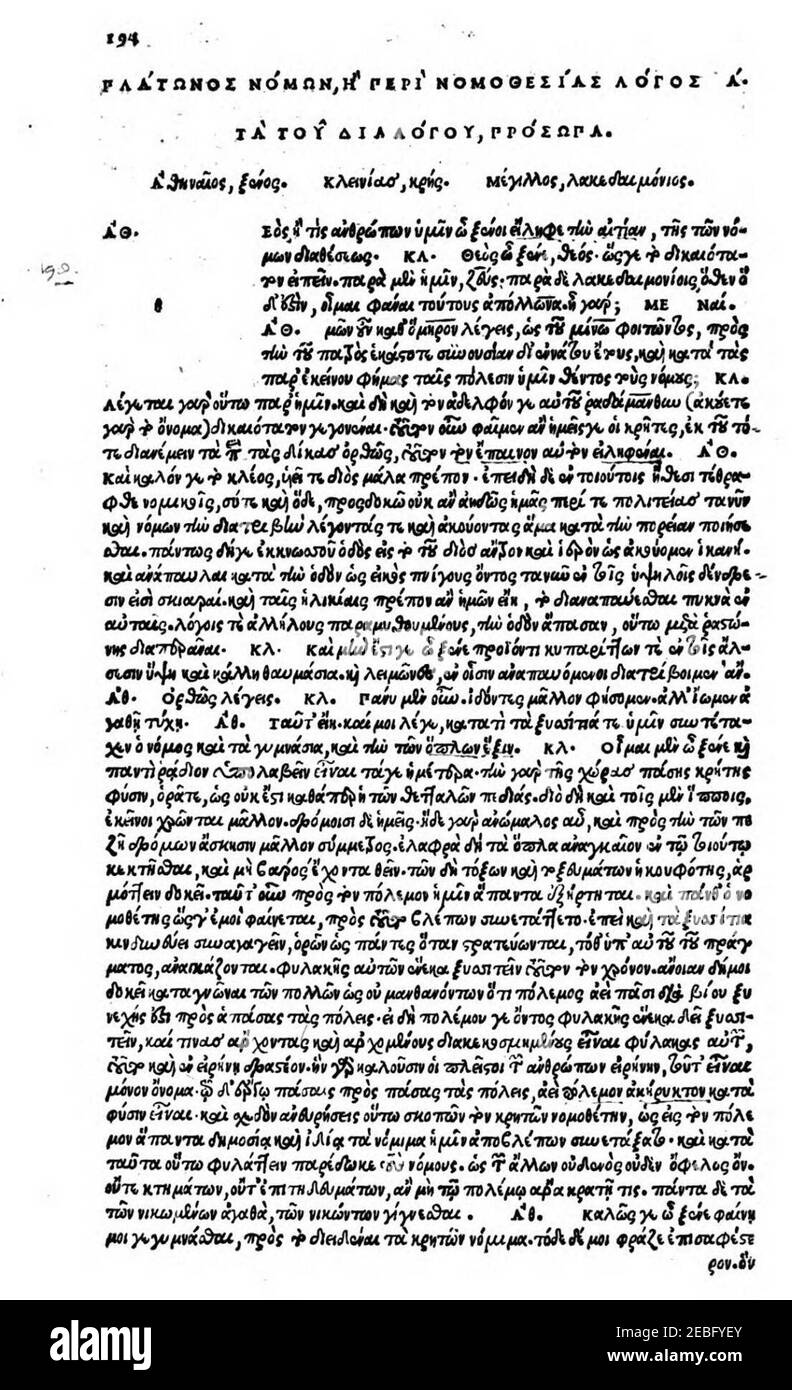 194
ΠΛΑ´ΤΩΝΟΣ ΝΟ´ΜΩΝ, Η` ΠΕΡΙ` ΝΟΜΟΘΕΣΙ´ΑΣ ΛΟ´ΓΟΣ Α´.
ΤΑ` ΤΟΥ͂ ΔΙΑΛΟ´ΓΟΥ, ΠΡΟ´ΣΩΠΑ.
Ἀθηναῖος, ξένος. Κλεινίας, κρής. Μέγιλλος, λακεδαιμόνιος.
ΑΘ. εὸς, ἤ τις ἀνθρώπων ὑμῖν ὦ ξένοι εἴληφε τὴν αἰτίαν, τῆς τῶν νό-
μων διαθέσεως. ΚΛ. Θεὸς ὦ ξένε, θεός. ὥς γε τὸ δικαιότα-
τον εἰπεῖν. παρὰ μὲν ἡμῖν, ζεύς. παρὰ δὲ λακεδαιμονίοις, ὅθεν ὅ
θ δ' ἐστὶν, οἶμαι φάναι τούτους ἀπόλλωνα. ἦ γάρ; ΜΕ Ναί.
ΑΘ. μῶν οὖν καθ' ὅμηρον λέγεις, ὡς τοῦ μίνω φοιτῶντος, πρὸς
τὴν τοῦ πατρὸς ἑκάστοτε συνουσίαν δι' ἐννάτου ἔτους, καὶ κατὰ τὰς
παρ' ἐκείνου φήμας ταῖς πόλεσιν ὑμῖν θέντος τοὺς νόμους; ΚΛ.
Λέγεται γὰρ οὕτω παρ' ἡμῖν. καὶ δὴ καὶ τὸν ἀδελφόν γε αὐτοῦ ῥαδάμανθυν (ἀκούετε
γὰρ τὸ ὄνομα) δικαιότατον γεγονέναι. τοῦτον οὖν φαῖμεν ἂν ἡμεῖς γε οἱ κρῆτες, ἐκ τοῦ τό-
τε διανέμειν τὰ περὶ τὰς δίκας ὀρθῶς, τοῦτον τὸν ἔπαινον αὐτὸν εἰληφέναι. ΑΘ.
Καὶ καλόν γε τὸ κλέος, υἱεῖ τε διὸς μάλα πρέπον. ἐπειδὴ δὲ ἐν τοιούτοις ἤθεσι τέθρα-
φθε νομικοῖς, σύ τε καὶ ὅδε, προσδοκῶ οὐκ ἂν ἀηδῶς ἡμᾶς περί τε πολιτείας τανῦν
καὶ νόμων τὴν διατριβὴν λέγοντάς τε καὶ ἀκούοντας ἅμα κατὰ τὴν πορείαν ποιήσε
σθαι. πάντως δ' ἥ γε ἐκ κνωσσοῦ ὁδὸς εἰς τὸ τοῦ διὸς ἄντρον καὶ ἱερὸν ὡς ἀκούομεν ἱκανή.
καὶ ἀνάπαυλαι κατὰ τὴν ὁδὸν ὡς εἰκὸς πνίγους ὄντος τανῦν ἐν τοῖς ὑψηλοῖς δένδρε-
σιν εἰσὶ σκιαραί. καὶ ταῖς ἡλικίαις πρέπον ἂν ἡμῶν εἴη, τὸ διαναπαύεσθαι πυκνὰ ἐν
αὐταῖς. λόγοις τε ἀλλήλους παραμυθουμένους, τὴν ὁδὸν ἅπασαν, οὕτω μετὰ ῥαστώ-
νης διαπερᾶναι. ΚΛ. Καὶ μὴν ἔστι γε ὦ ξένε προϊόντι κυπαρίττων τε ἐν τοῖς ἄλ-
σεσιν ὕψη καὶ κάλλη θαυμάσια. καὶ λειμῶνες, ἐν οἷσιν ἀναπαυόμενοι διατρίβοιμεν ἄν.
ΑΘ. Ὀρθῶς λέγεις. ΚΛ. Πάνυ μὲν οὖν. ἰδόντες μᾶλλον φήσομεν. ἀλλ' ἴωμεν ἀ
γαθῇ τύχῃ. ΑΘ. Ταῦτ' εἴη. καί μοι λέγε, κατὰ τί τὰ ξυσσίτιά τε ὑμῖν συντέτα-
χεν ὁ νόμος καὶ τὰ γυμνάσια, καὶ τὴν τῶν ὅπλων ἕξιν. ΚΛ. Οἶμαι μὲν ὦ ξένε καὶ
παντὶ ῥᾴδιον ὑπολαβεῖν εἶναι τά γε ἡμέτερα. τὴν γὰρ τῆς χώρας πάσης κρήτης
φύσιν, ὁρᾶτε, ὡς οὐκ ἔστι καθάπερ ἡ τῶν θετταλῶν πεδιάς. διὸ δὴ καὶ τοῖς μὲν ἵπποις,
ἐκεῖνοι χρῶνται μᾶλλον. δρόμοισι δὲ ἡμεῖς. ἥδε γὰρ ἀνώμαλος αὖ, καὶ πρὸς τὴν τῶν πε
ζῇ δρόμων ἄσκησιν μᾶλλον σύμμετρος. ἐλαφρὰ δὴ τὰ ὅπλα ἀναγκαῖον ἐν τῷ τοιούτῳ
κεκτῆσθαι, καὶ μὴ βάρος ἔχοντα θεῖν. τῶν δὴ τόξων καὶ τοξευμάτων ἡ κουφότης, ἁρ
μόττειν δοκεῖ. ταῦτ' οὖν πρὸς τὸν πόλεμον ἡμῖν ἅπαντα ἐξήρτηται. καὶ πάνθ' ὁ νο
μοθέτης ὥς γ' ἐμοὶ φαίνεται, πρὸς τοῦτο βλέπων συνετάττετο. ἐπεὶ καὶ τὰ ξυσσίτια
κινδυνεύει συναγαγεῖν, ὁρῶν ὡς πάντες ὅταν στρατεύωνται, τόθ' ὑπ' αὐτοῦ τοῦ πράγ
ματος, ἀναγκάζονται. φυλακῆς αὑτῶν ἕνεκα ξυσσιτεῖν τοῦτον τὸν χρόνον. ἄνοιαν δή μοι
δοκεῖ καταγνῶναι τῶν πολλῶν ὡς οὐ μανθανόντων ὅτι πόλεμος ἀεὶ πᾶσι διὰ βίου ξυ
νεχής ἐστι πρὸς ἁπάσας τὰς πόλεις. εἰ δὴ πολέμου γε ὄντος φυλακῆς ἕνεκα δεῖ ξυσσι-
τεῖν, καί τινας ἄρχοντας καὶ ἀρχομένους διακεκοσμημένους εἶναι φύλακας αὐτῶν,
τοῦτο καὶ ἐν εἰρήνῃ δραστέον. ἣν γὰρ καλοῦσιν οἱ πλεῖστοι τῶν ἀνθρώπων εἰρήνην, τοῦτ' εἶναι
μόνον ὄνομα. τῷ δ' ἔργῳ πάσαις πρὸς πάσας τὰς πόλεις, ἀεὶ πόλεμον ἀκήρυκτον κατὰ
φύσιν εἶναι. καὶ σχεδὸν ἀνευρήσεις οὕτω σκοπῶν τὸν κρητῶν νομοθέτην, ὡς εἰς τὸν πόλε
μον ἅπαντα δημοσίᾳ καὶ ἰδίᾳ τὰ νόμιμα ἡμῖν ἀποβλέπων συνετάξατο. καὶ κατὰ
ταῦτα οὕτω φυλάττειν παρέδωκε τοὺς νόμους. ὡς τῶν ἄλλων οὐδενὸς οὐδὲν ὄφελος ὂν.
οὔτε κτημάτων, οὔτ' ἐπιτηδευμάτων, ἂν μὴ τῷ πολέμῳ ἄρα κρατῇ τις. πάντα δὲ τὰ
τῶν νικωμένων ἀγαθὰ, τῶν νικώντων γίγνεσθαι. ΑΘ. Καλῶς γε ὦ ξένε φαίνῃ
μοι γεγυμνάσθαι, πρὸς τὸ διειδέναι τὰ κρητῶν νόμιμα. τόδε δέ μοι φράζε ἔτι σαφέστε
ρον. ὃν
alamy
Image ID: 2EBFYEY
www.alamy.com